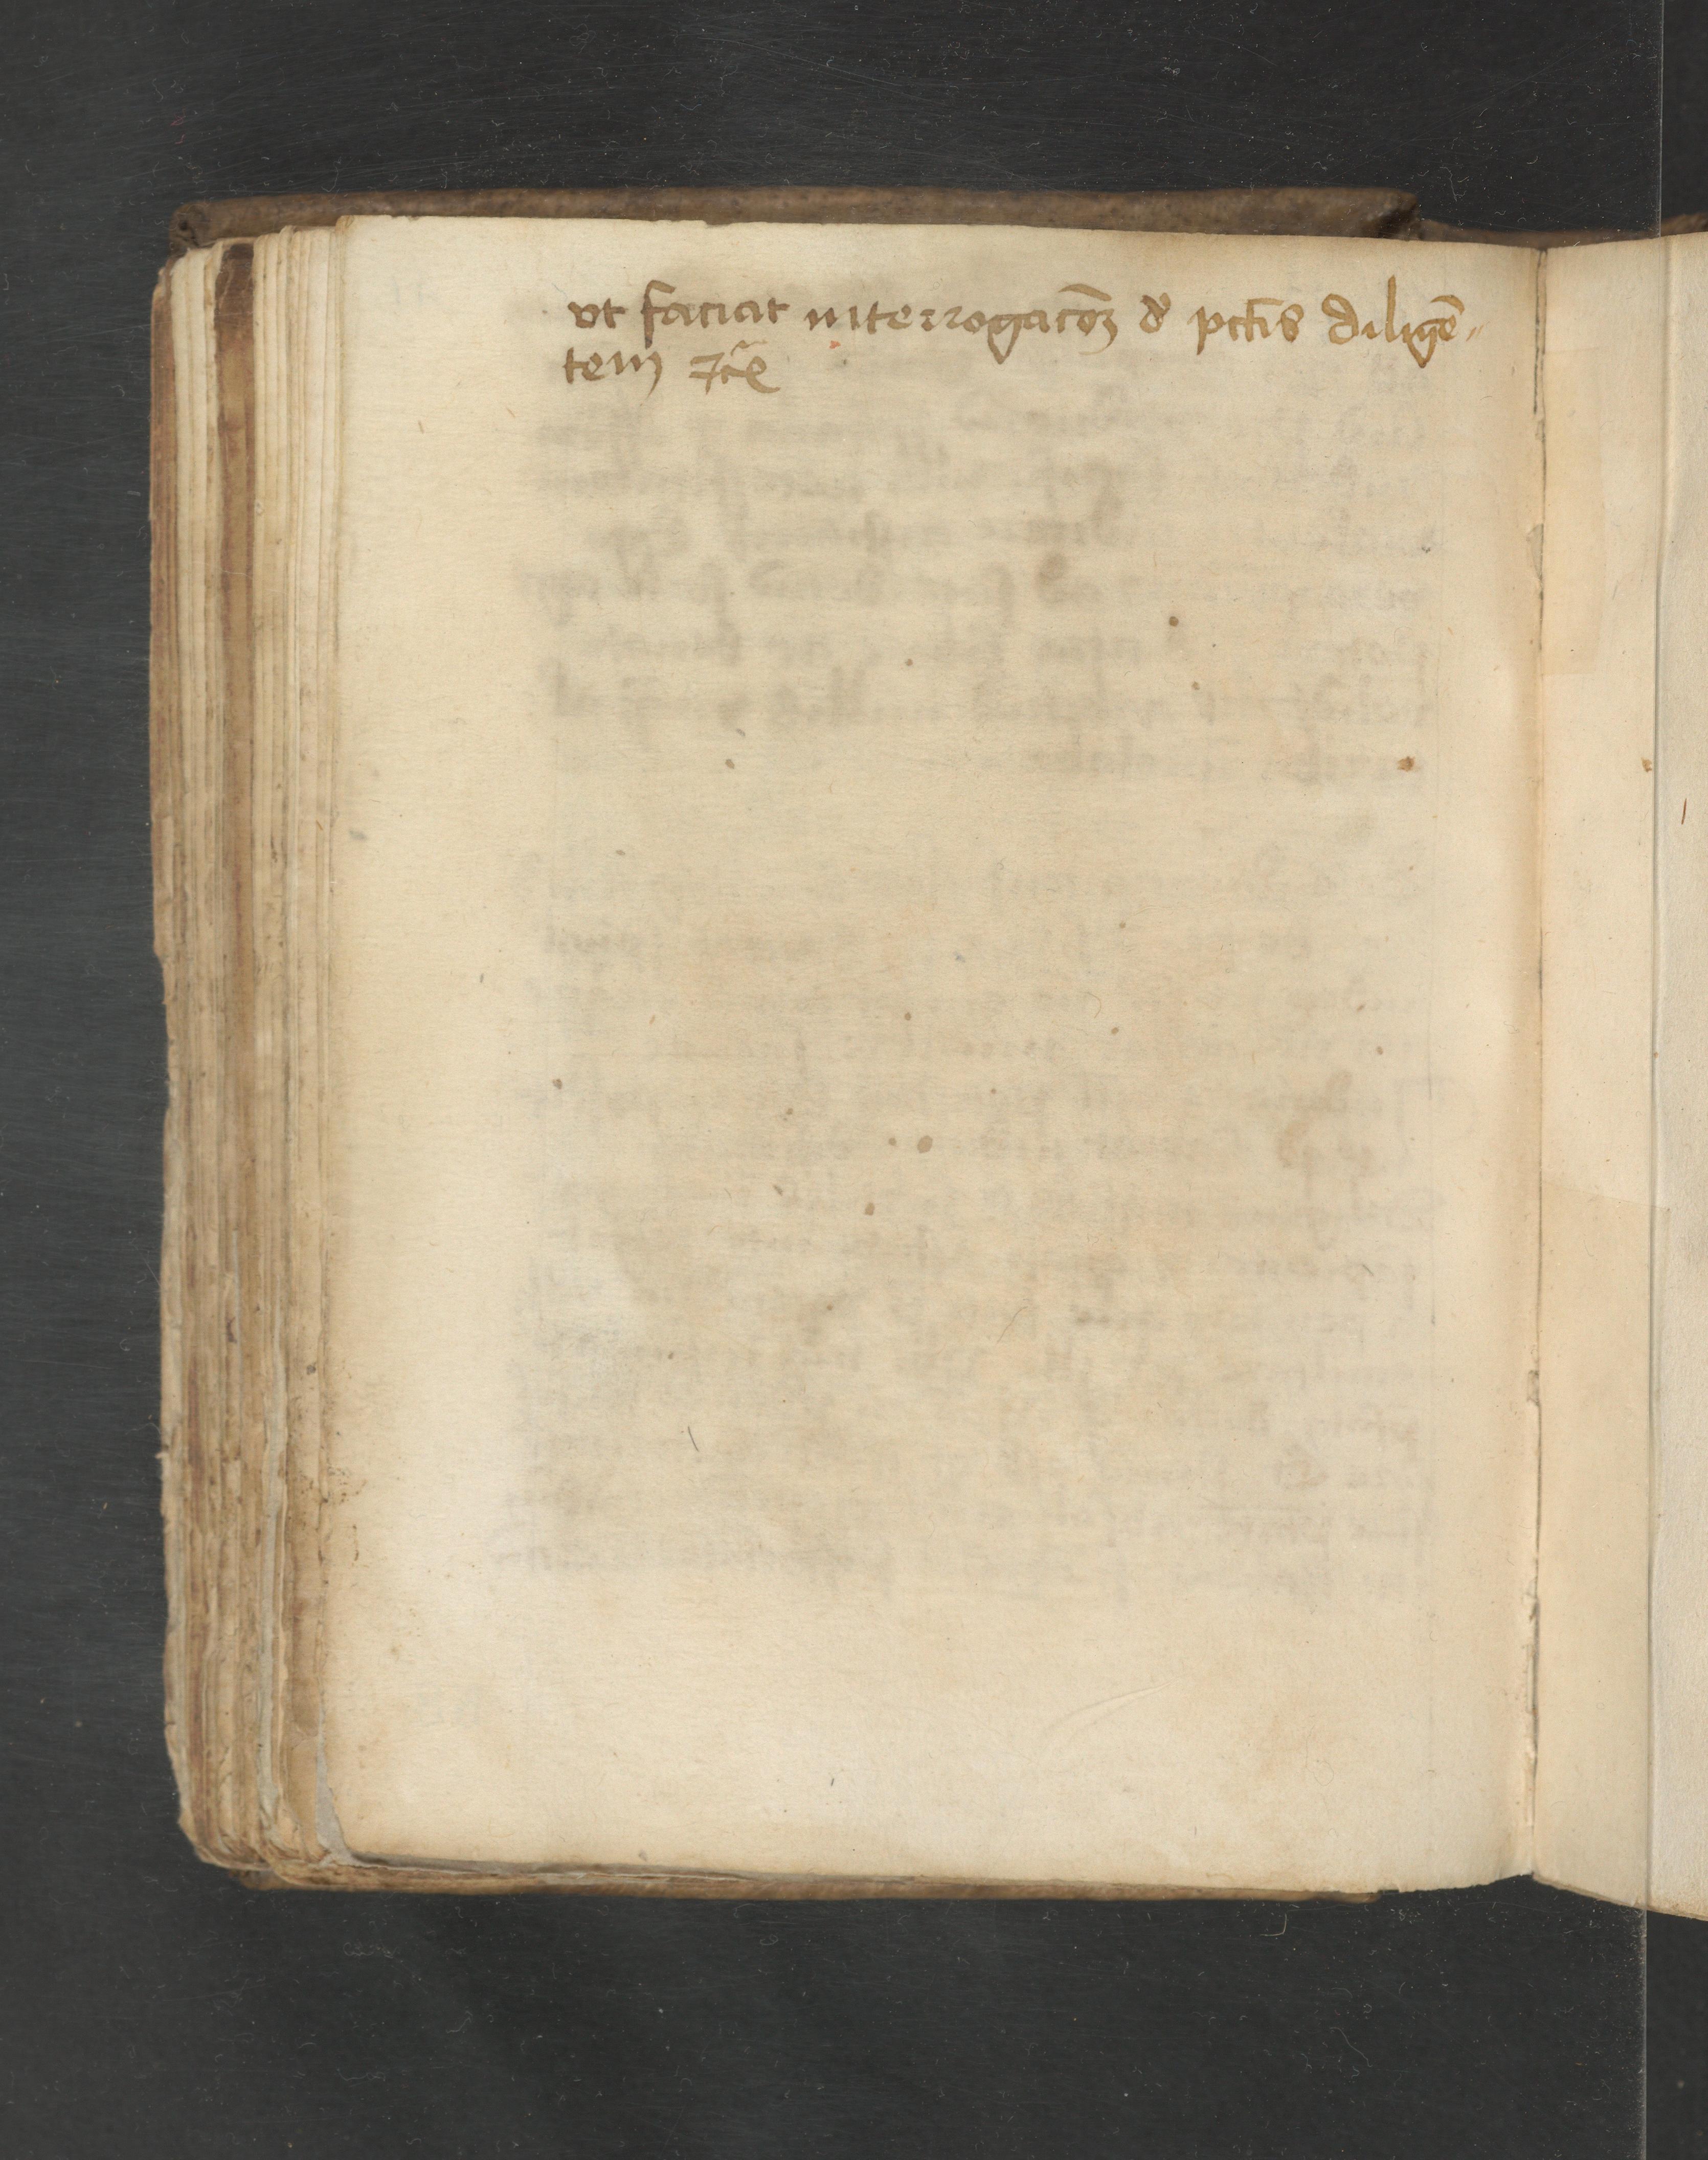 vt faciat interrogacōꝫ d̕ pctīs diligē〃
tem ⁊cͣ